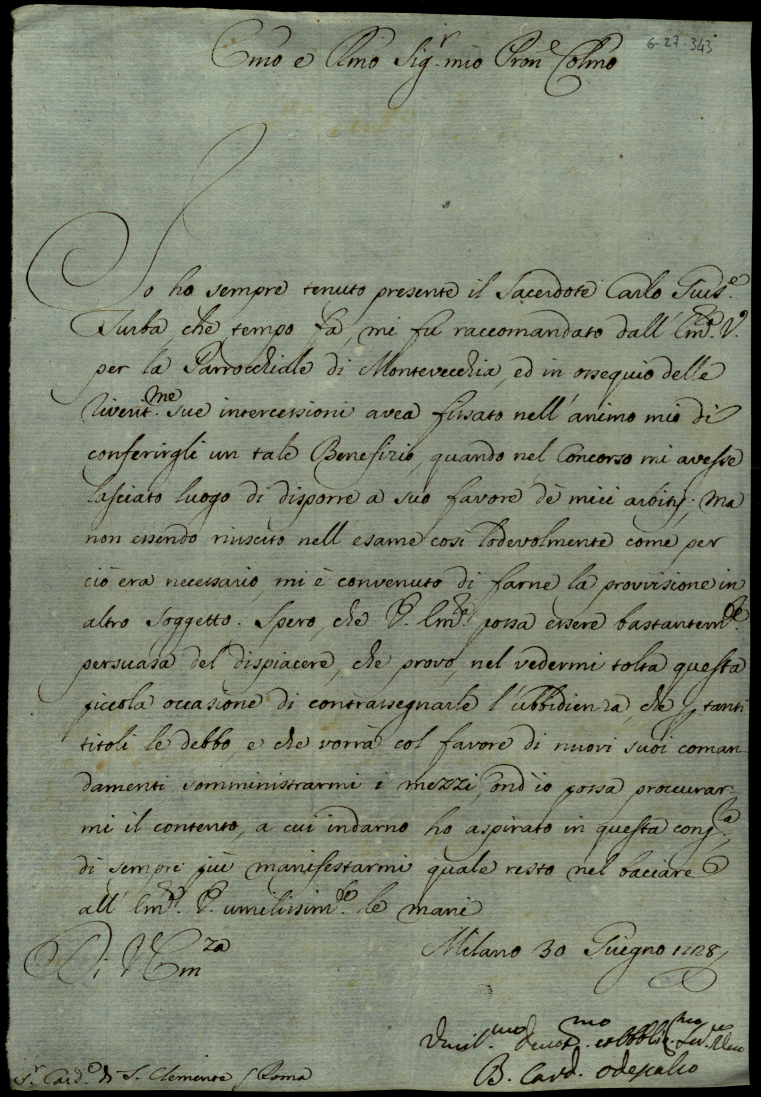 6-27-343
Emo e Rmo Sig.r mio Pron.e Colmo
Io ho sempre tenuto presente il Sacerdote Carlo Gius.e
Turba, che tempo fa, mi fu raccomandato dall' Em.a V.
per la Parrocchiale di Montevecchia, ed in ossequio delle
riverit.me sue intercessioni avea fissato nell'animo mio di
conferirgli un tale Benefizio, quando nel Concorso mi avesse
lasciato luogo di disporre a suo favore de miei arbitrj; ma
non essendo riuscito nell' esame così lodevolmente come per
ciò era necessario, mi è convenuto di farne la provvisione in
altro soggetto. Spero, che V. Em.za possa essere bastantem.te
persuasa del dispiacere, che provo, nel vedermi tolta questa
piccola occasione di contrassegnarle l'ubbidienza, che p tanti
titoli le debbo, e che vorrà col favore di nuovi suoi coman-
damenti somministrarmi i mezzi, ond'io possa proccurar-
mi il contento, a cui indarno ho aspirato in questa cong.a
di sempre più manifestarmi quale resto nel baciare
all' Em.a V. umilissim.te le mani
Di V Em.za
Milano 30 Giugno 1728
Umil.mo devot.mo et obblig.mo
B. Card. Odescalco
S.r Card.e di S. Clemente / Roma